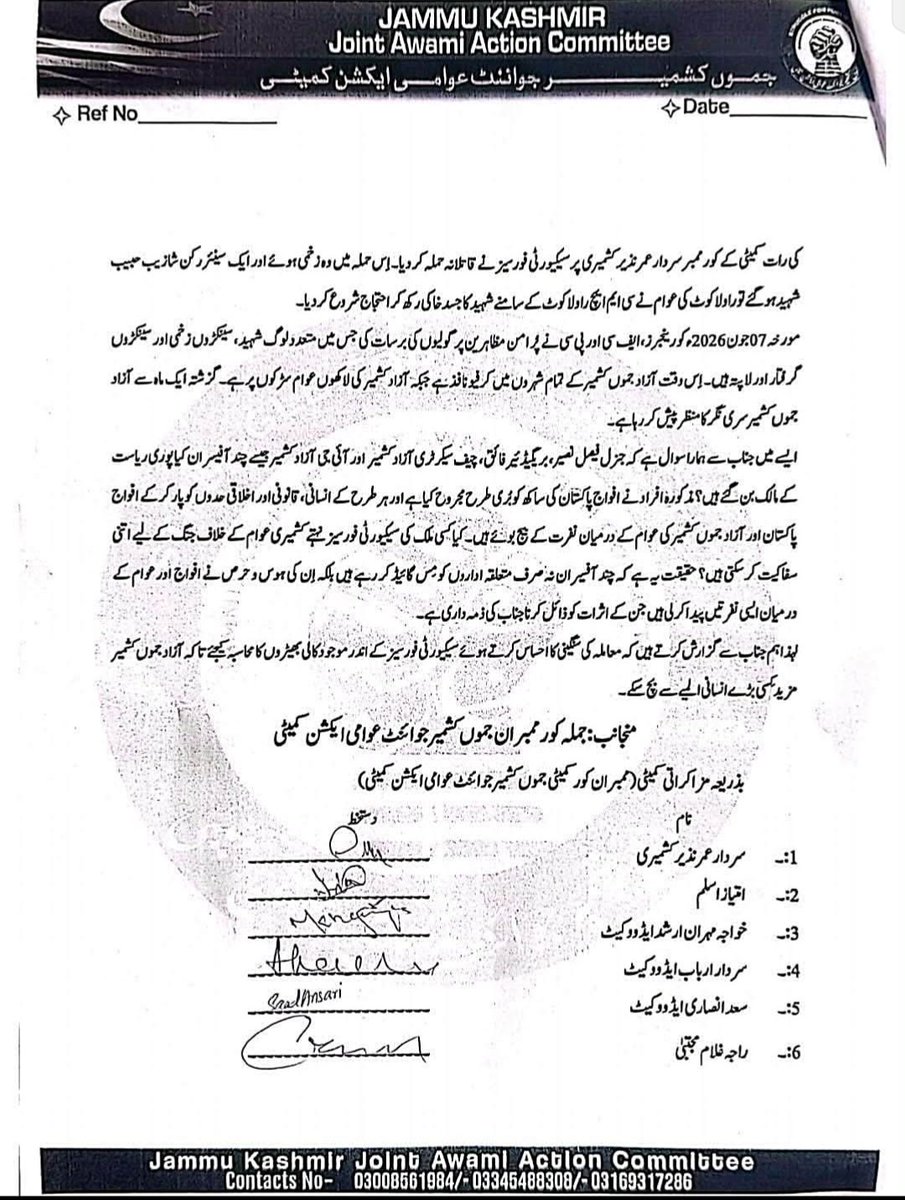 JAMMU KASHMIR
Joint Awami Action Committee
جموں کشمیر جوائنٹ عوامی ایکشن کمیٹی
Ref No
Date
کی رات کمیٹی کے کور ممبر سردار عمر نذیر کشمیری پر سیکیورٹی فورسیز نے قاتلانہ حملہ کر دیا۔ اِس حملہ میں وہ زخمی ہوئے اور ایک سینئر رکن شازیب حبیب
شہید ہو گئے تو راولاکوٹ کی عوام نے سی ایم ایچ راولاکوٹ کے سامنے شہید کا جسد خاکی رکھ کر احتجاج شروع کر دیا۔
مورخہ 07جون2026ء کو رینجرز، ایف سی اور پی سی نے پُرامن مظاہرین پر گولیوں کی برسات کی جس میں متعدد لوگ شہید، سینکڑوں زخمی اور سینکڑوں
گرفتار اور لاپتہ ہیں۔ اِس وقت آزاد جموں کشمیر کے تمام شہروں میں کرفیو نافذ ہے جبکہ آزاد کشمیر کی لاکھوں عوام سڑکوں پر ہے۔ گزشتہ ایک ماہ سے آزاد
جموں کشمیر سری نگر کا منظر پیش کر رہا ہے۔
ایسے میں جناب سے ہمارا سوال ہے کہ جنرل فیصل نصیر، بریگیڈئیر فائق، چیف سیکرٹری آزاد کشمیر اور آئی جی آزاد کشمیر جیسے چند آفیسران کیا پوری ریاست
کے مالک بن گئے ہیں؟ مذکورہ افراد نے افواج پاکستان کی ساکھ کو بُری طرح مجروح کیا ہے اور ہر طرح کے انسانی، قانونی اور اخلاقی حدوں کو پار کر کے افواج
پاکستان اور آزاد جموں کشمیر کی عوام کے درمیان نفرت کے بیج بوئے ہیں۔ کیا کسی ملک کی سیکیورٹی فورسیز نہتے کشمیری عوام کے خلاف جنگ کے لیے اتنی
سفاکیت کر سکتی ہیں؟ حقیقت یہ ہے کہ چند آفیسران نہ صرف متعلقہ اداروں کو مِس گائیڈ کر رہے ہیں بلکہ اِن کی ہوس و حرص نے افواج اور عوام کے
درمیان ایسی نفرتیں پیدا کر لی ہیں جن کے اثرات کو ذائل کرنا جناب کی ذمہ داری ہے۔
لہذا ہم جناب سے گزارش کرتے ہیں کہ معاملہ کی سنگینی کا احساس کرتے ہوئے سیکیورٹی فورسیز کے اندر موجود کالی بھیڑوں کا محاسبہ کیجئے تاکہ آزاد جموں کشمیر
مزید کسی بڑے انسانی المیے سے بچ سکے۔
منجانب: جملہ کور ممبران جموں کشمیر جوائنٹ عوامی ایکشن کمیٹی
بذریعہ مزاکراتی کمیٹی (ممبران کور کمیٹی جموں کشمیر جوائنٹ عوامی ایکشن کمیٹی)
نام دستخط
1:۔ سردار عمر نذیر کشمیری
2:۔ امتیاز اسلم
3:۔ خواجہ مہران ارشد ایڈووکیٹ
4:۔ سردار ارباب ایڈووکیٹ
5:۔ سعد انصاری ایڈووکیٹ Saad Ansari
6:۔ راجہ غلام مجتبیٰ
Jammu Kashmir Joint Awami Action Committee
Contacts No- 03008561984/- 03345488308/- 03169317286